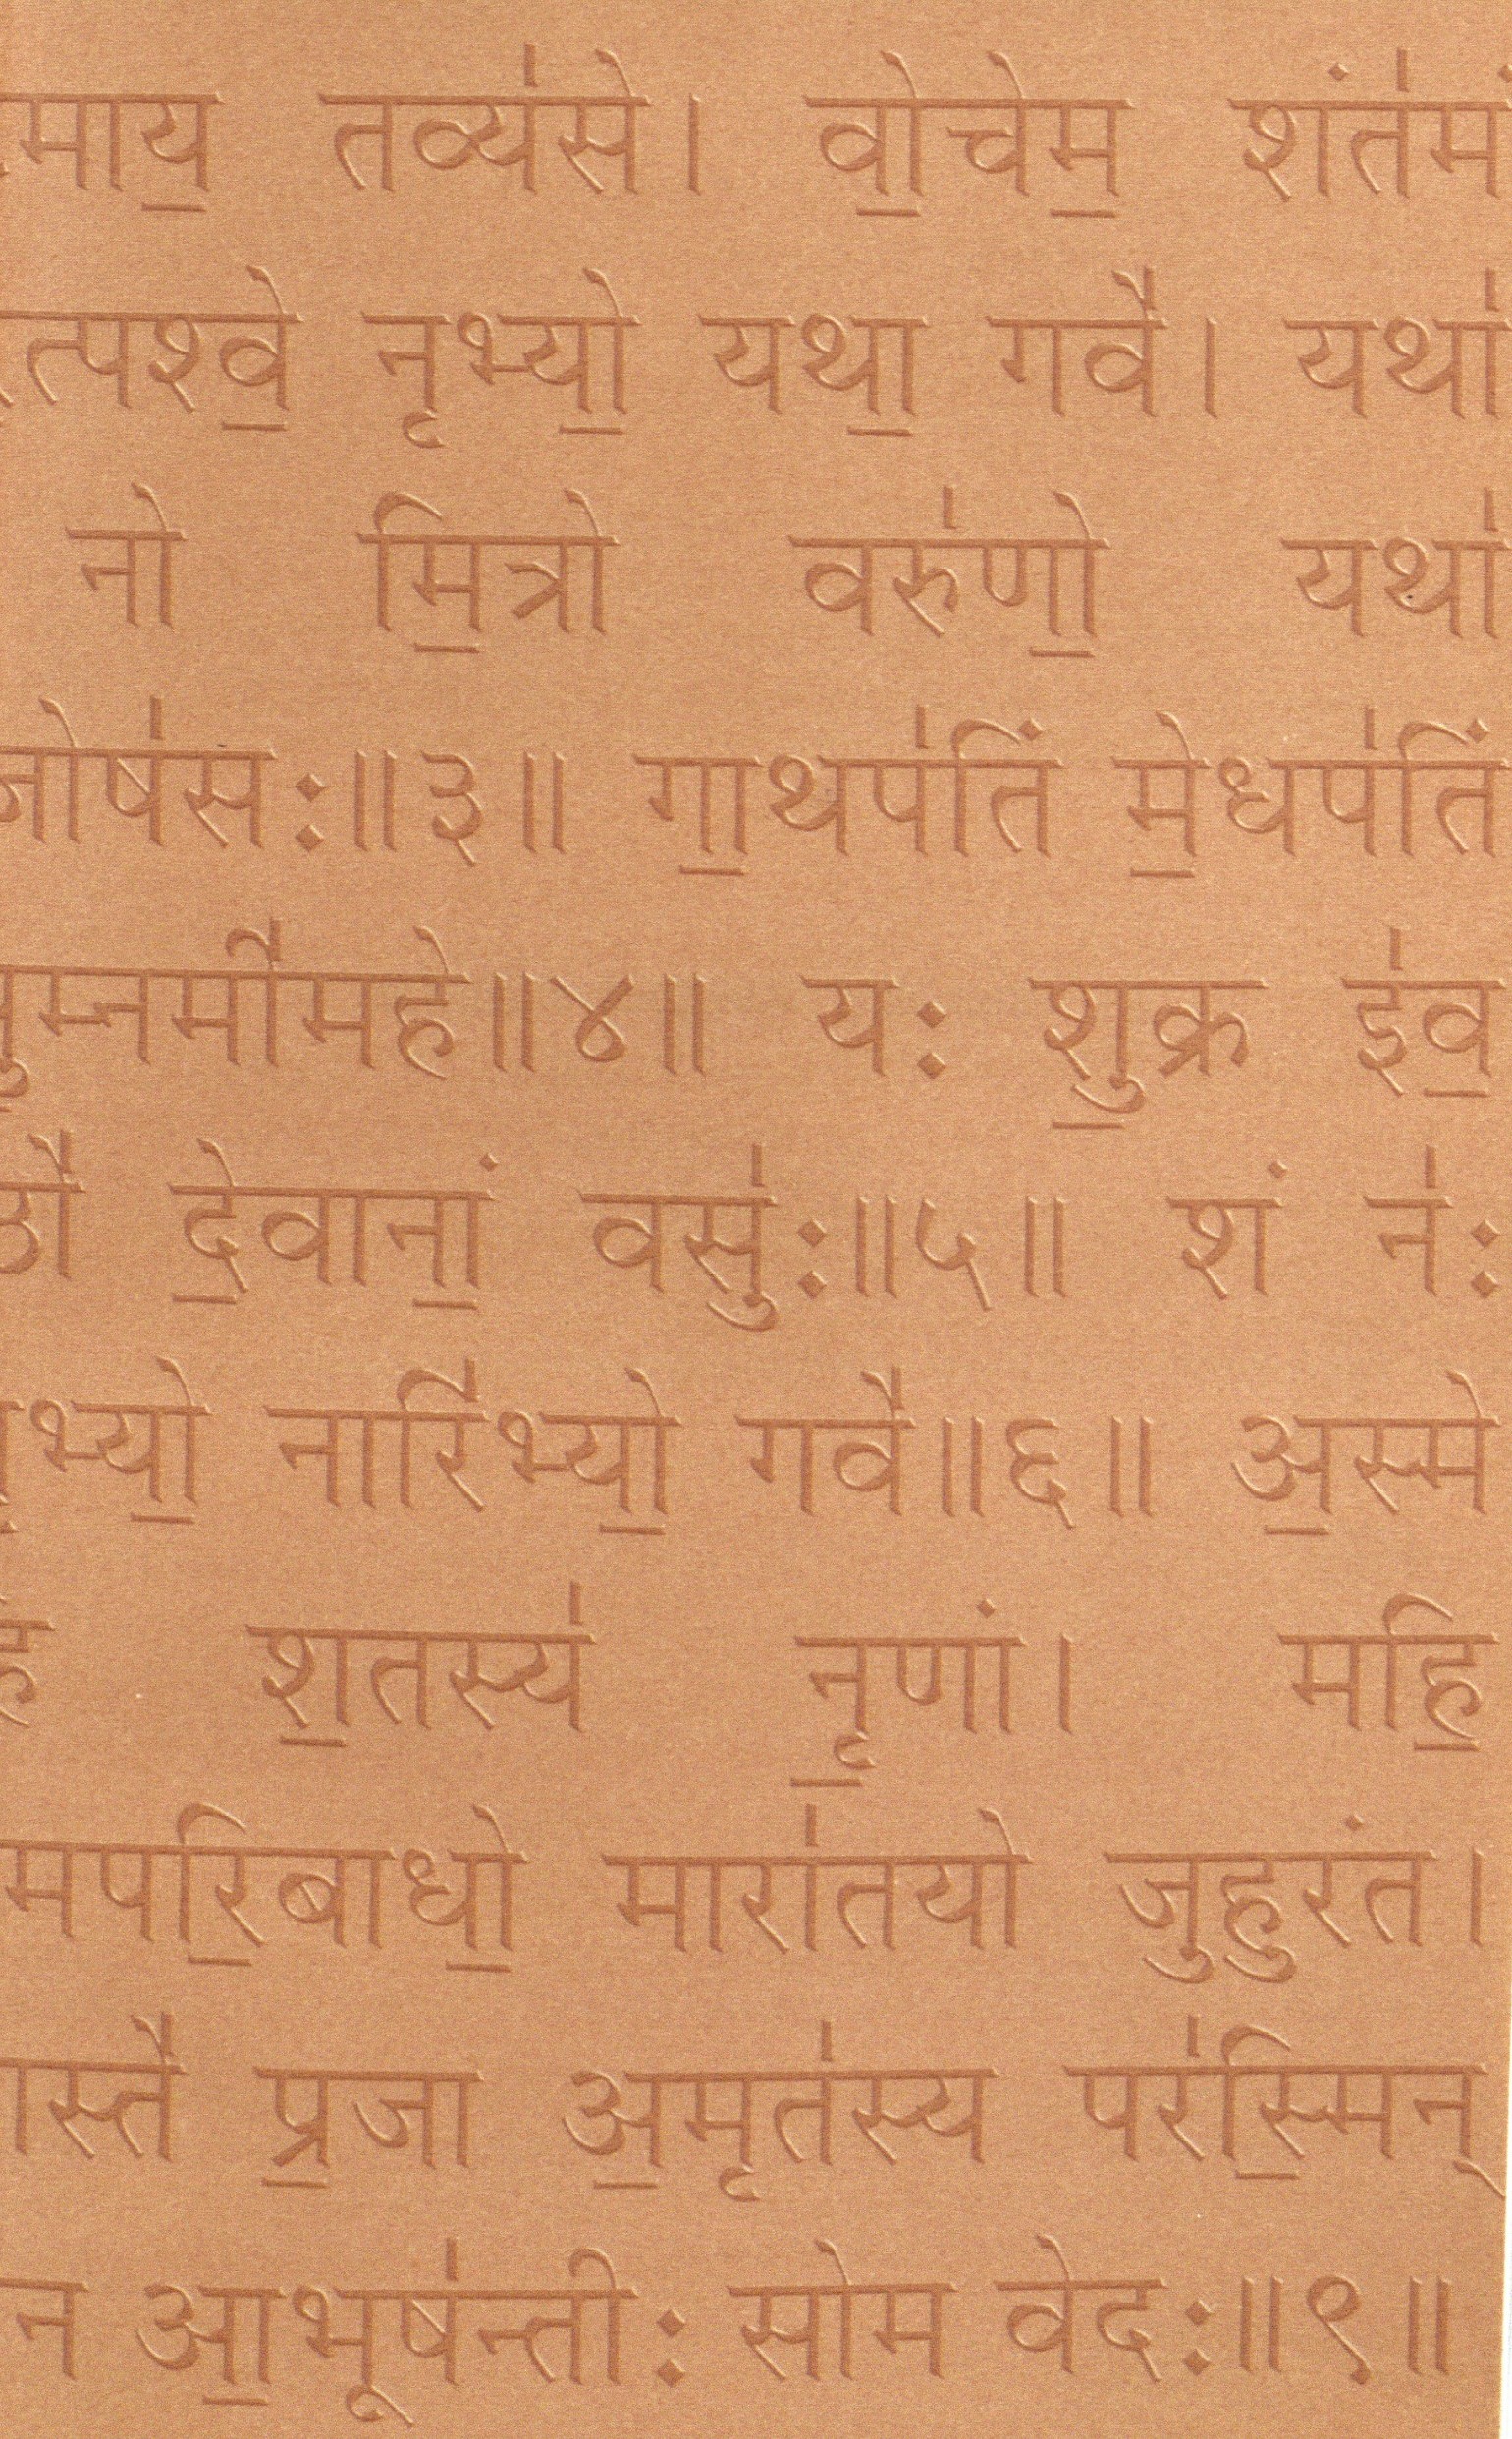 माय॒ तव्य॑से। वो॒चेम॒ शंत॑मं
त्पश्वे॒ नृभ्यो॒ यथा॒ गवे॑। यथा॑
नो मि॒त्रो वरु॑णो॒ यथा॑
जोष॑सः॥३॥ गा॒थप॑तिं मे॒धप॑तिं
सुम्नमी॑महे॥४॥ यः शु॒क्र इ॑व॒
ठो॑ दे॒वानां॒ वसुः॑॥५॥ शं नः॑
नृभ्यो॒ नारि॑भ्यो॒ गवे॑॥६॥ अ॒स्मे
श॒तस्य॑ नृ॒णां। महि॒
मपरि॒बाधो॒ मारा॑तयो जुहुरंत।
स्ते॑ प्र॒जा अ॒मृत॑स्य पर॑स्मि॒न्
न आ॒भूष॑न्तीः सोम वेदः॥९॥